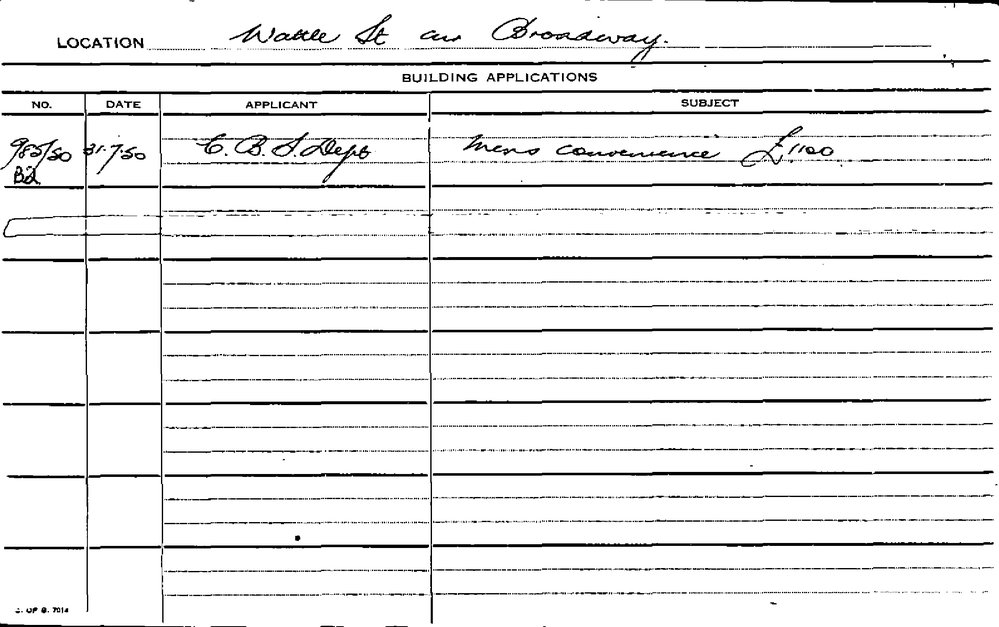 LOCATION Wattle St cnr Broadway.
BUILDING APPLICATIONS
NO. DATE APPLICANT SUBJECT
985/50 31.7.50 C. B. S. Dept Mens convenience £1100
B2